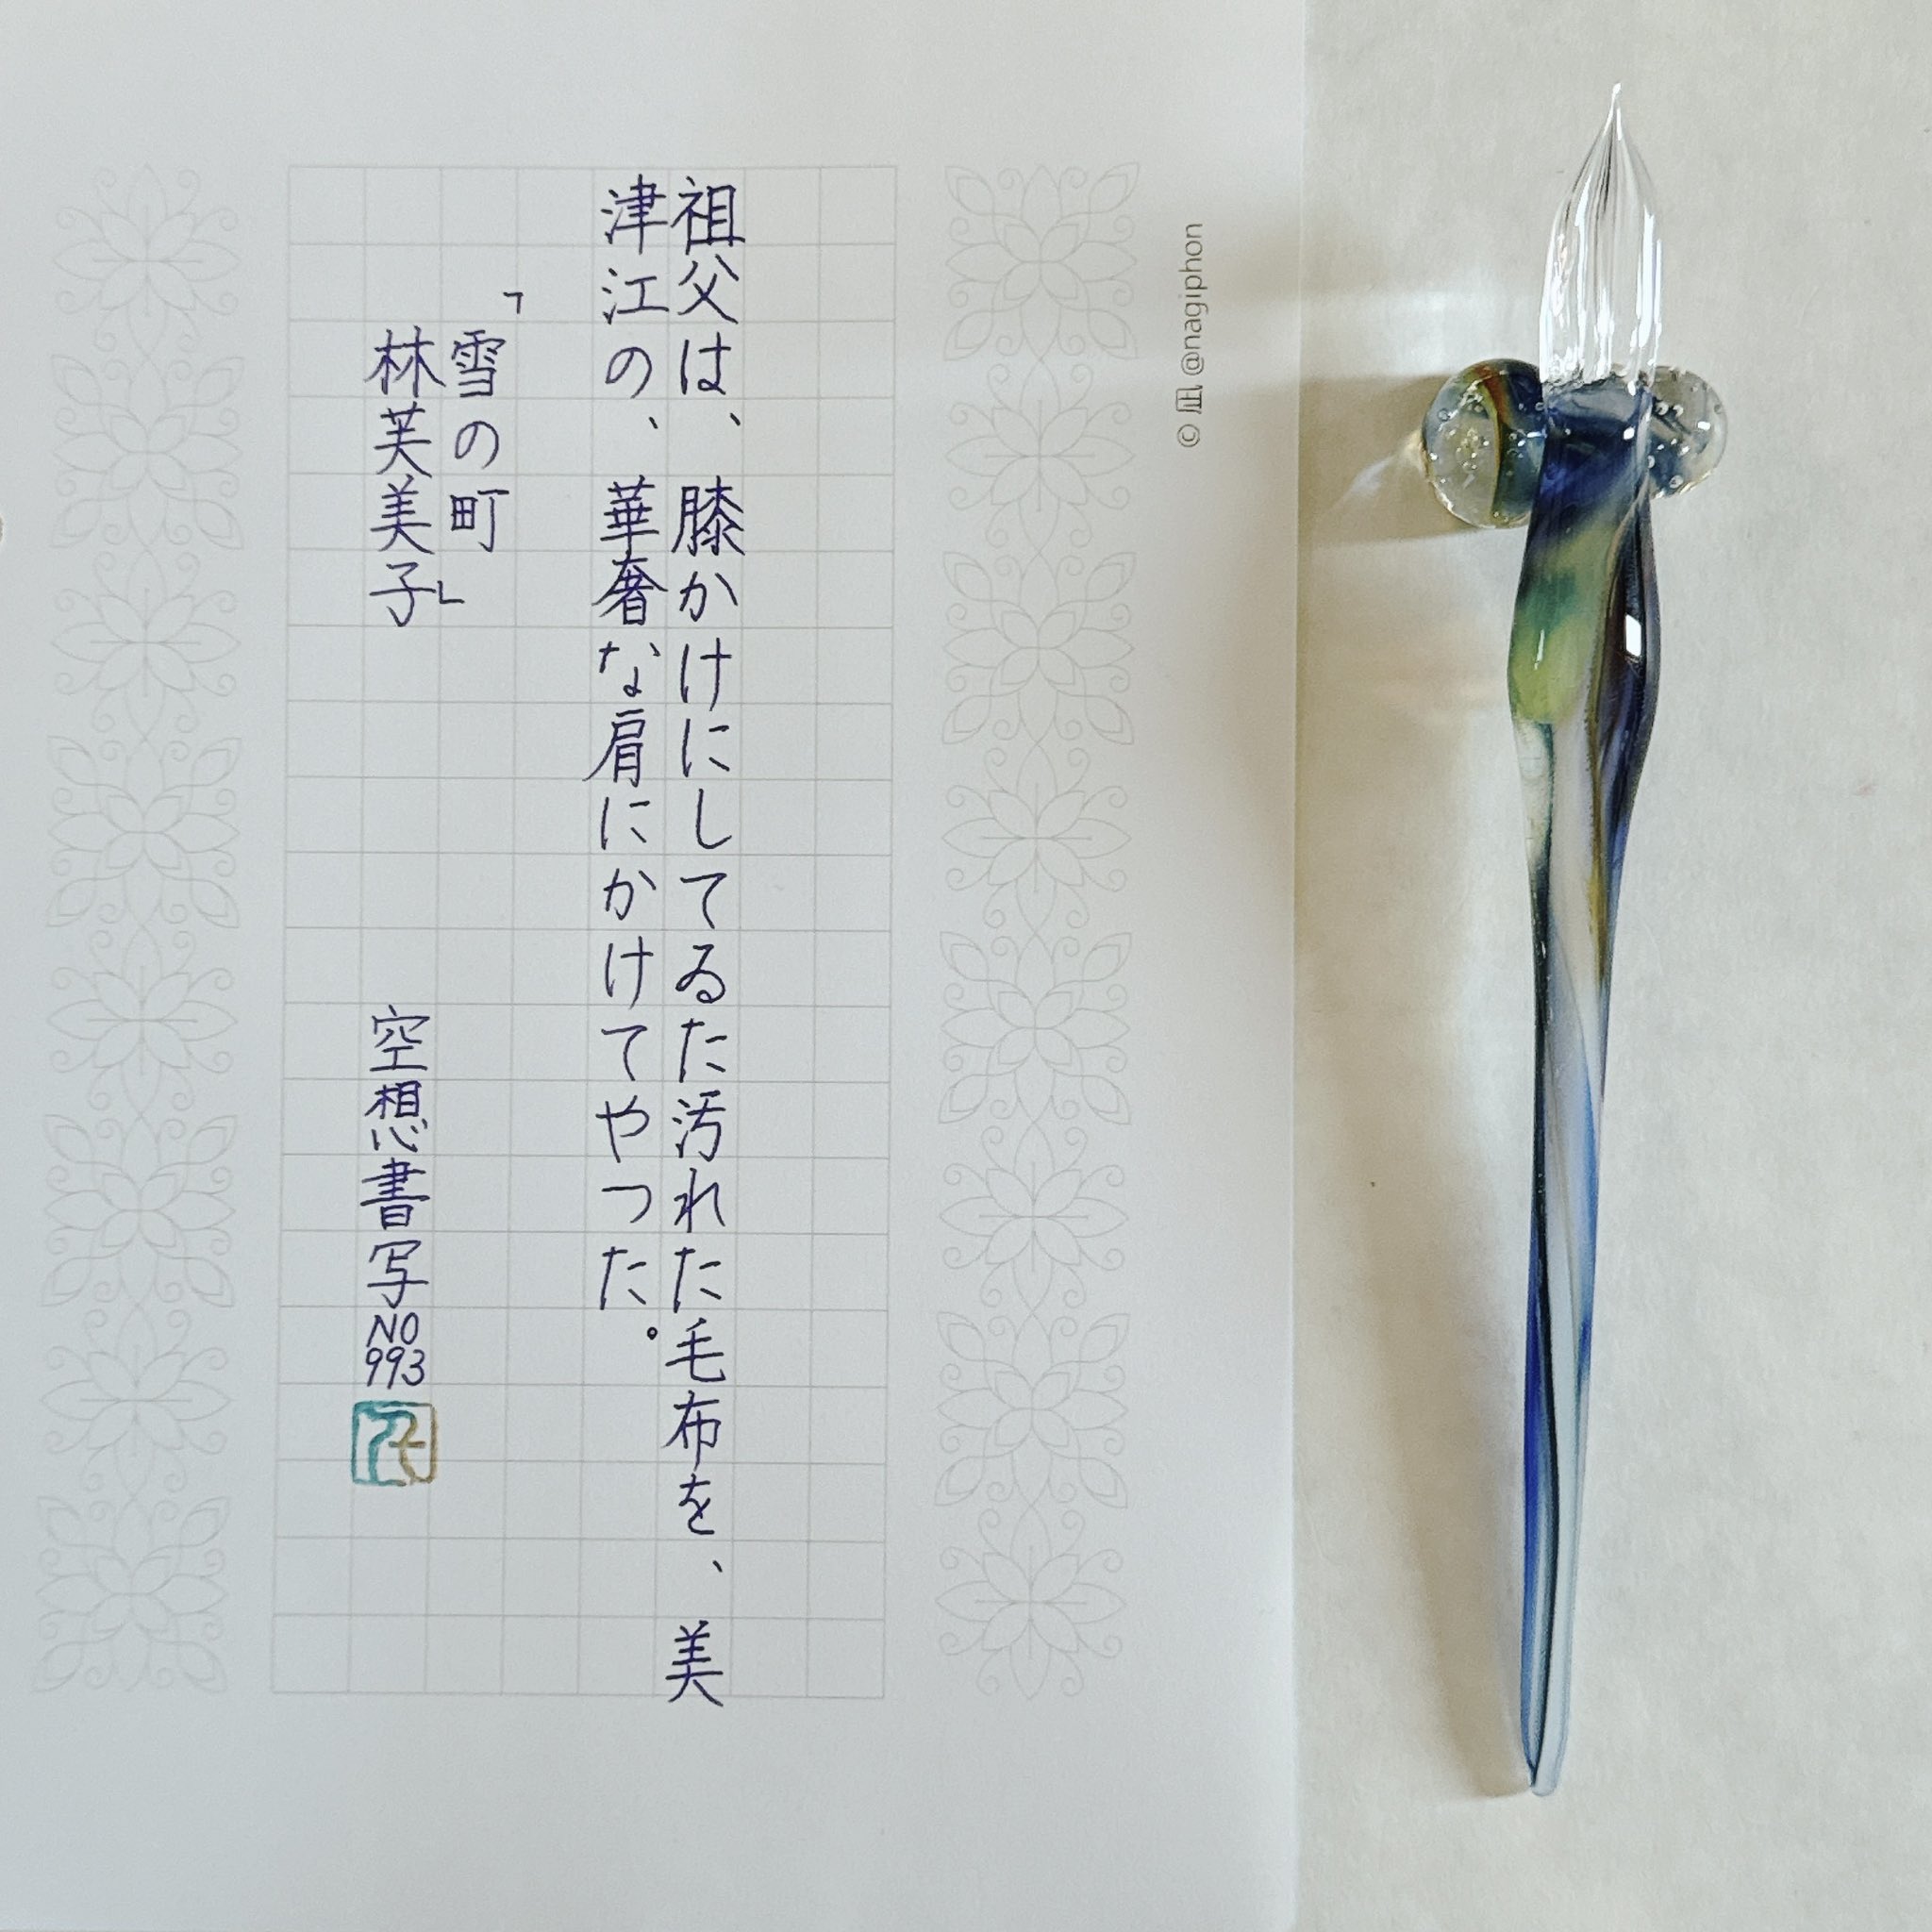 祖父は、膝かけにしてゐた汚れた毛布を、美
津江の、華奢な肩にかけてやつた。
「雪の町」
林芙美子
空想書写NO993
© 凪 @nagiphon